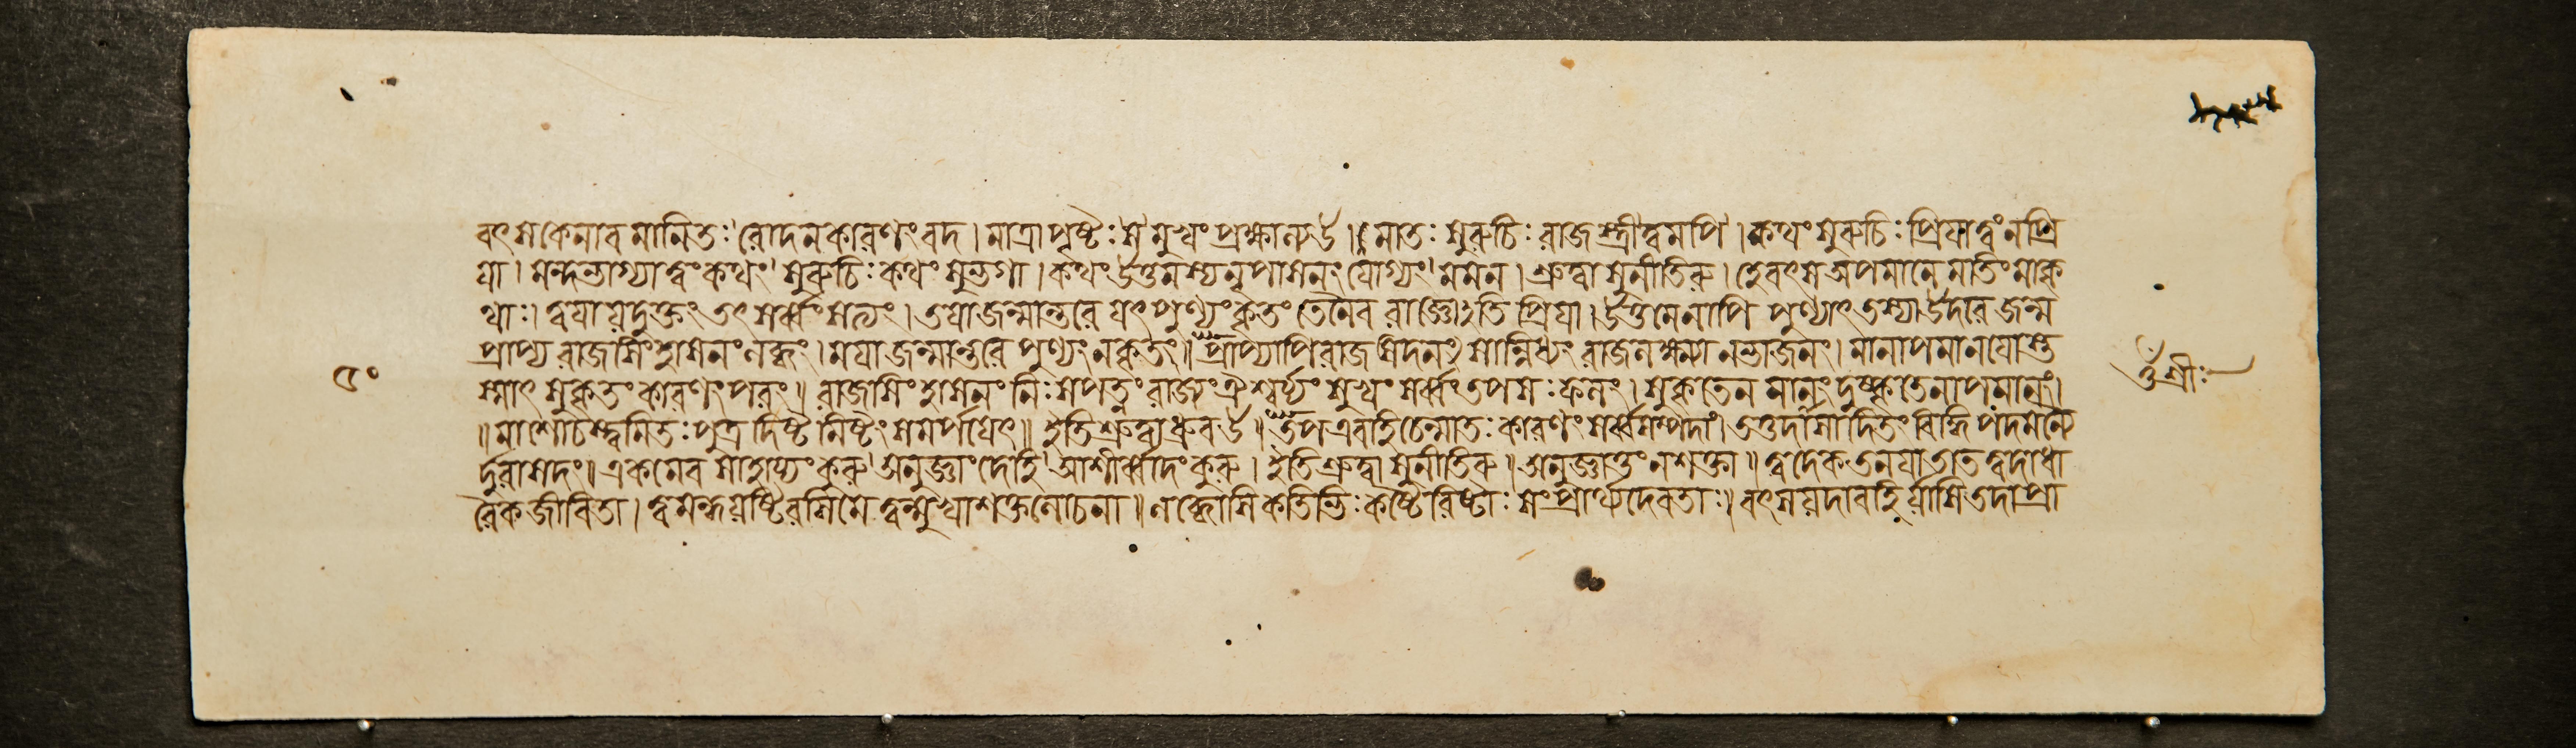 বৎস কেনাবমানিতঃ রোদনকারণং বদ । মাত্রা পৃষ্টঃ স মুখং প্রক্ষাল্য উ । মাতঃ সুরুচিঃ রাজস্ত্রী ত্বমপি । কথং সুরুচিঃ প্রিযা ত্বং ন প্রি
যা । মন্দভাগ্যা ত্বং কথং সুরুচিঃ কথং সুভগা । কথং উত্তমস্য নৃপাসনং যোগ্যং মম ন । শ্রুত্বা সুনীতিরু । হে বৎস অপমানে মতিং মা কৃ
থাঃ । ত্বযা যদুক্তং তৎ সর্ব্বং সত্যং । তযা জন্মান্তরে যৎ পুণ্যং কৃতং তেনৈব রাজ্ঞোঽতিপ্রিযা । উত্তমেনাপি পুণ্যাৎ তস্যা উদরে জন্ম
প্রাপ্য রাজসিংহাসনং লব্ধং । মযা জন্মান্তরে পুণ্যং ন কৃতং ॥ প্রাপ্যাপি রাজসদনং সান্নিধ্যং রাজলক্ষ্ম্যা ন ভাজনং । মানাপমানযোস্ত
স্মাৎ সুকৃতং কারণং পরং ॥ রাজসিংহাসনং নিঃসপত্নং রাজ্যং ঐশ্বর্য্যং সুখং সর্ব্বং তপসঃ ফলং । সুকৃতেন মানং দুষ্কৃতেনাপমানং ।
॥ মা শোচস্ত্বমিতঃ পুত্র দিষ্টমিষ্টং সমর্পযেৎ ॥ ইতি শ্রুত্বা ধ্রুব উ ॥ তপ এবাহি চেন্মাতঃ কারণং সর্ব্বসম্পদাং । তত্তদাসাদিতং বিদ্ধি পদমন্যৈ
র্দুরাসদং ॥ একমেব সাহায্যং কুরু অনুজ্ঞাং দেহি আশীর্ব্বাদং কুরু । ইতি শ্রুত্বা সুনীতিরু ॥ অনুজ্ঞাতুং ন শক্তা ॥ ত্বদেকতনযা তাত ত্বদাধা
রৈকজীবিতা । ত্বমন্ধযষ্টিরসি মে ত্বন্মুখাশক্তলোচনা ॥ লব্ধোসি কতিভিঃ কষ্টৈরিষ্টাঃ সংপ্রার্থ্য দেবতাঃ ॥ বৎস যদা বহির্যাসি তদা প্রা
ওঁ শ্রীঃ